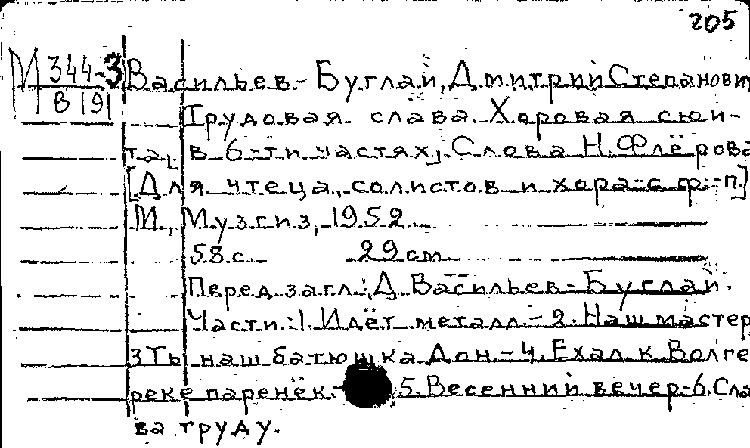 205
М 344-3
В 191
Васильев-Буглай, Дмитрий Степанович
Трудовая слава. Хоровая сюи-
та [в 6-ти частях]. Слова Н. Флёрова
[Для чтеца, солистов и хора с ф-п.]
М., Музгиз, 1952.
58 с. 29 см
Перед загл.: Д. Васильев-Буглай.
Части: 1. Идёт металл.-2. Наш мастер
3 Ты наш батюшка Дон.-4. Ехал к Волге
реке паренёк.- 5. Весенний вечер.-6. Сла
ва труду.